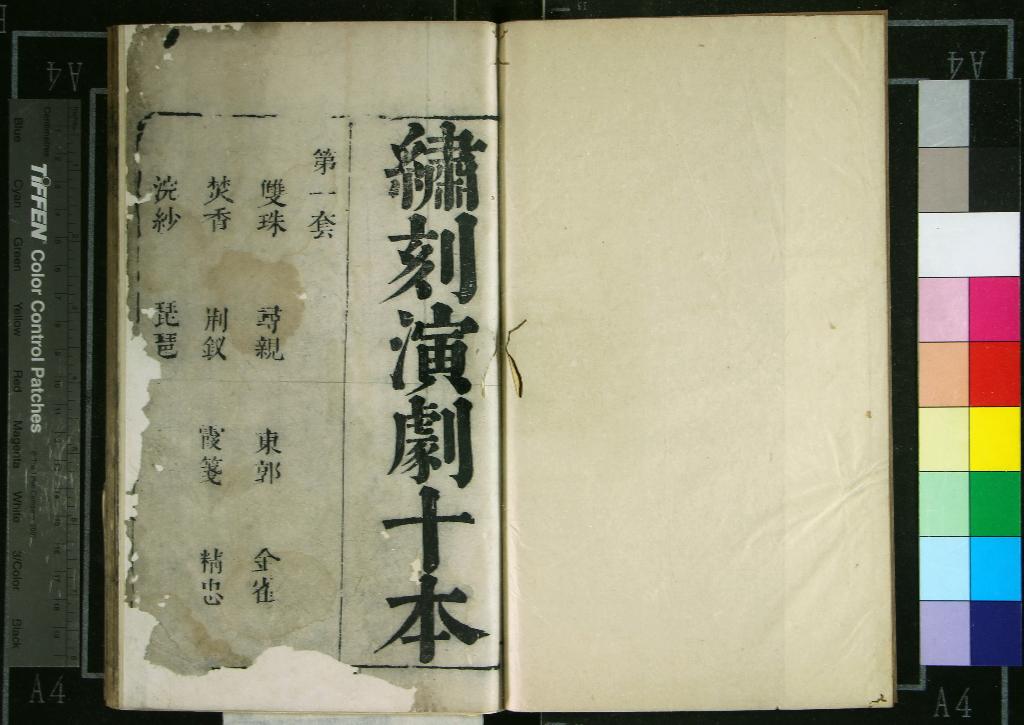 繡刻演劇十本
第一套
雙珠 尋親 東郭 金雀
焚香 荊釵 霞箋 精忠
浣紗 琵琶
TIFFEN Color Control Patches
Blue Cyan Green Yellow Red Magenta White 3/Color Black
A4
A4
A4
A4